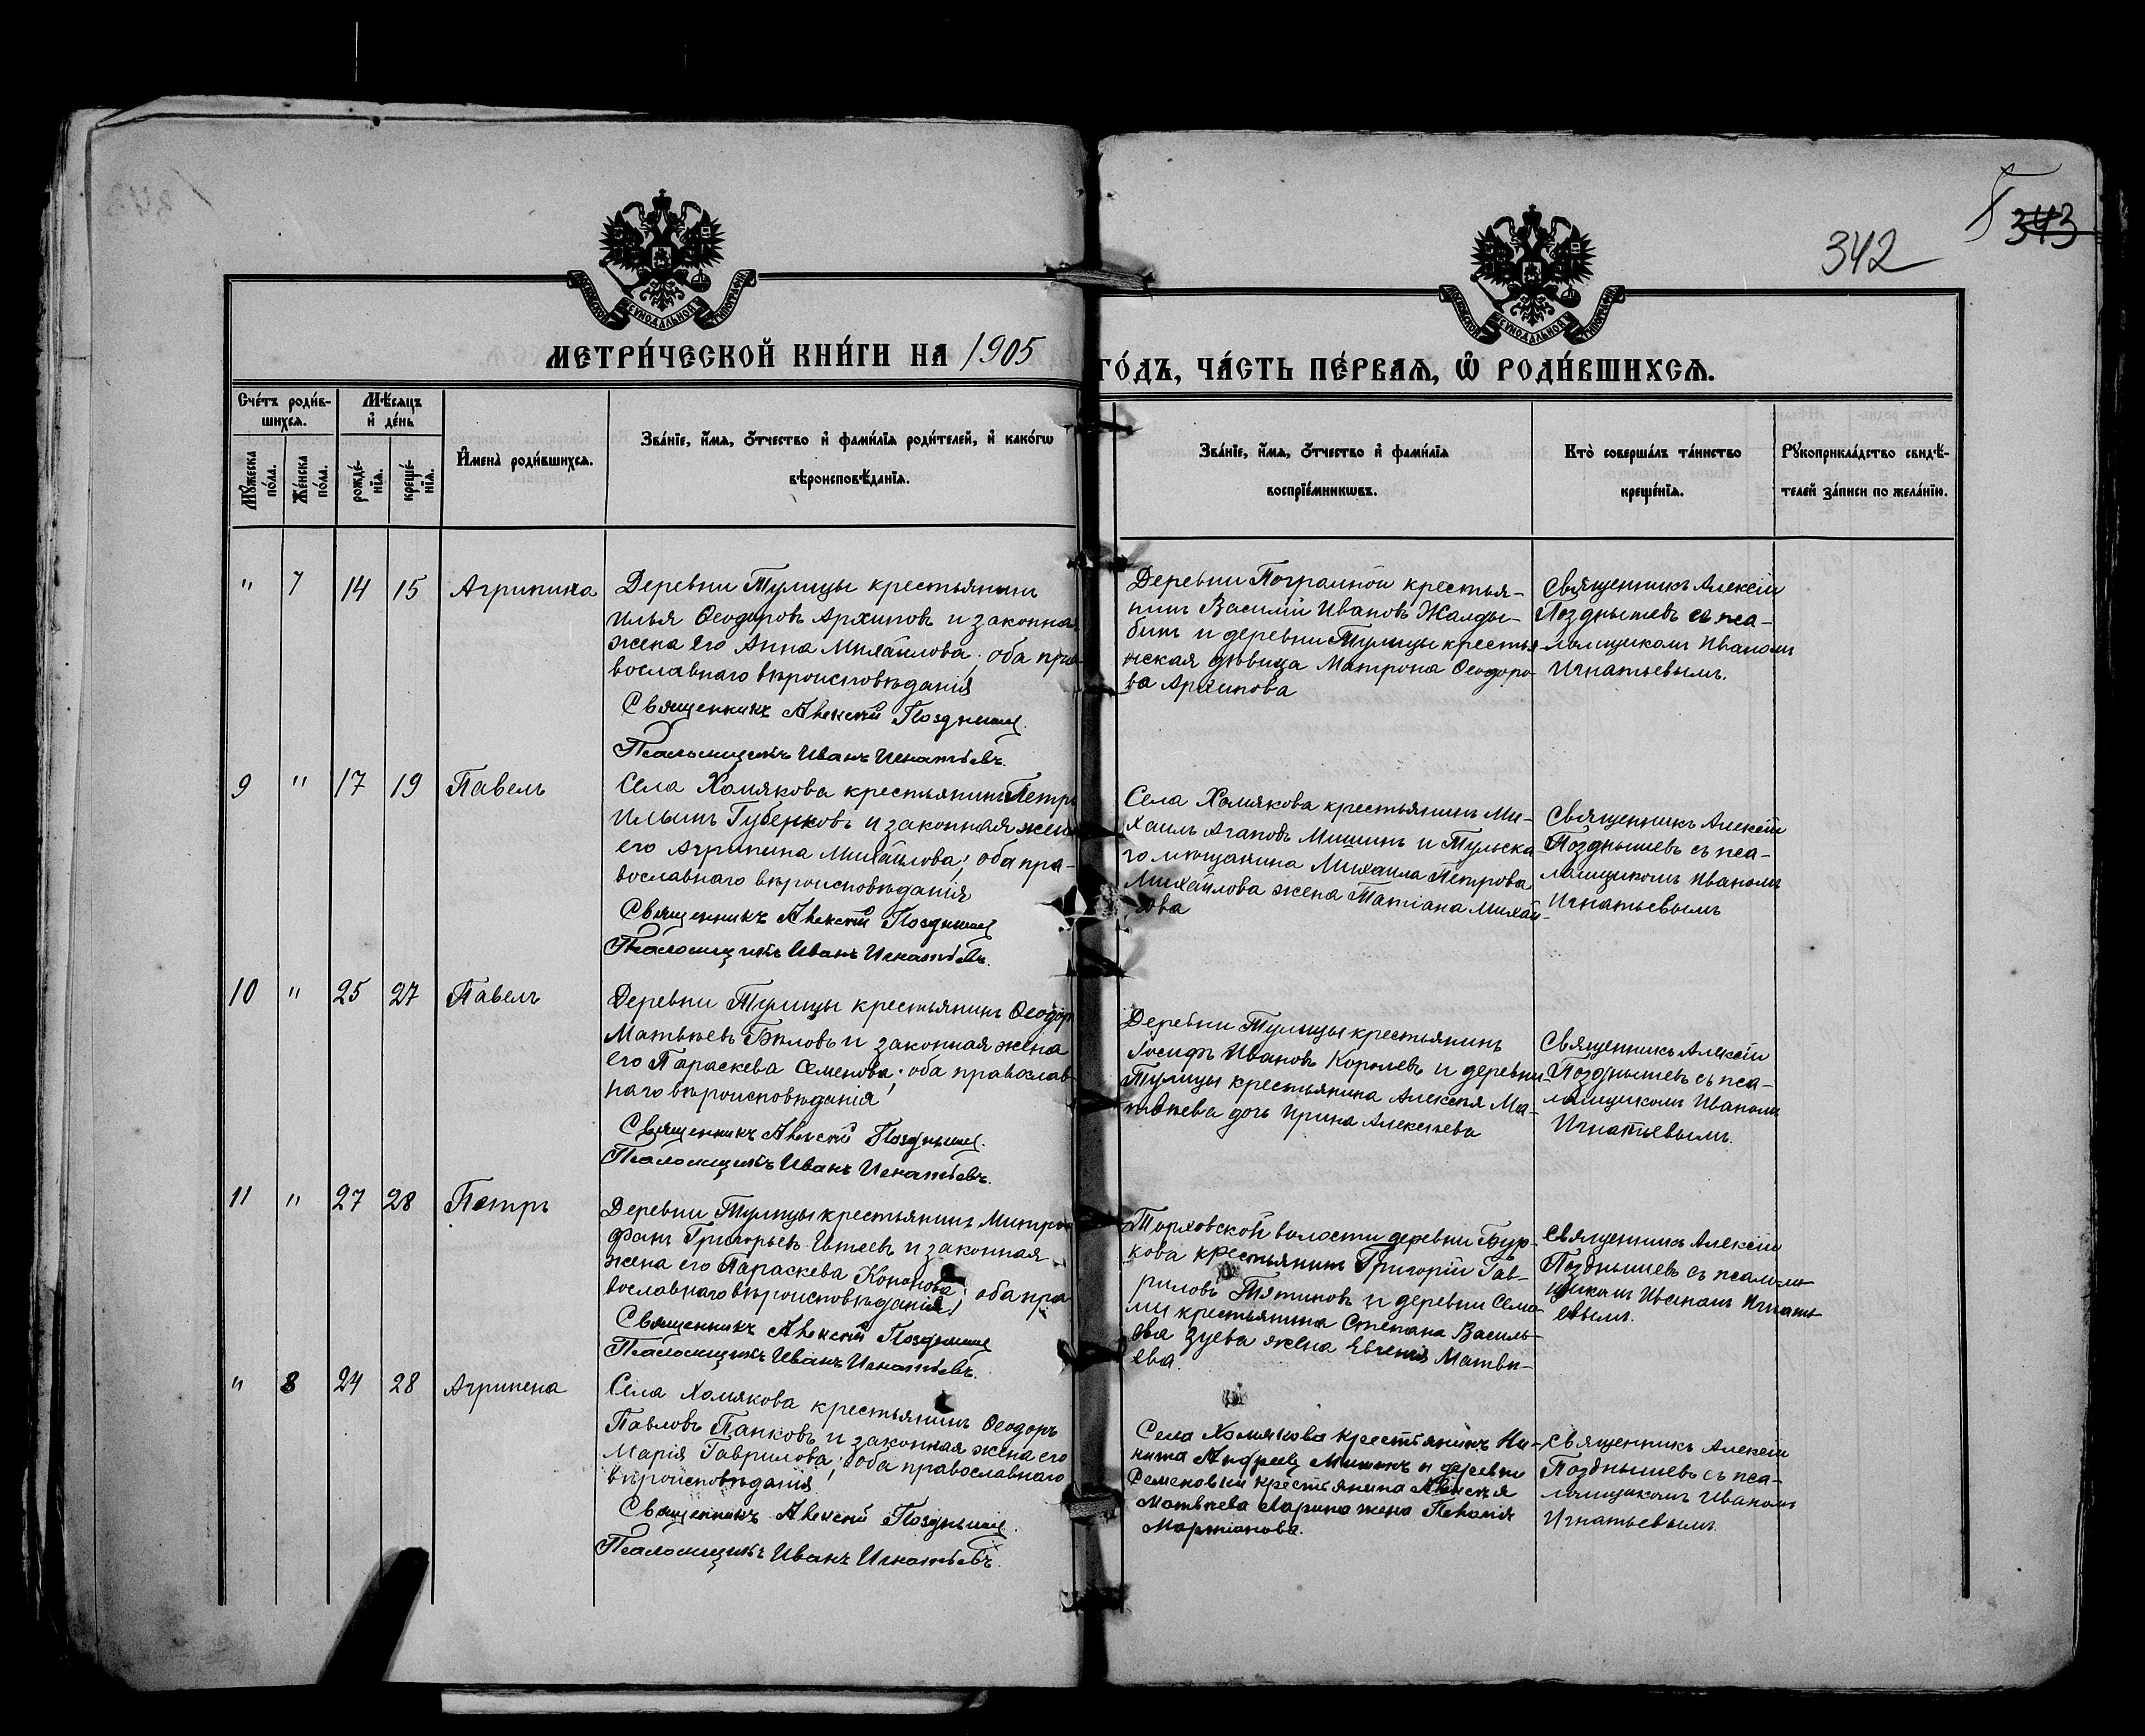 342
343
МОСКОВСКОЙ СУНОДАЛЬНОЙ ТИПОГРАФІИ
МОСКОВСКОЙ СУНОДАЛЬНОЙ ТИПОГРАФІИ
МЕТРИ́ЧЕСКОЙ КНИ́ГИ НА 1905
ГО́ДЪ, ЧА́СТЬ ПЕ́РВАѦ, Ѡ҆ РОДИ́ВШИХСѦ.
Сче́тъ роди́в-
шихсѧ.
Мꙋ́жеска по́ла.
Же́нска по́ла.
Мѣ́сѧцъ
и҆ де́нь
рожде́-
нїѧ.
креще́-
нїѧ.
И҆мена̀ роди́вшихсѧ.
Зва́нїе, и҆́мѧ, ѻ҆́тчество и҆ фами́лїѧ роди́телей, и҆ како́гѡ
вѣроисповѣ́данїѧ.
Зва́нїе, и҆́мѧ, ѻ҆́тчество и҆ фами́лїѧ
воспрїе́мникѡвъ.
Кто̀ соверша́лъ та́инство
креще́нїѧ.
Рꙋкоприкла́дство свидѣ́-
телей за́писи по жела́нїю.
" 7 14 15 Агрипина
Деревни Тулицы крестьянинъ
Илья Ѳеодоровъ Архиповъ и законная
жена его Анна Михайлова; оба пра-
вославнаго вѣроисповѣданія
Священникъ Алексій Позднышев
Псаломщикъ Иванъ Игнатьевъ.
Деревни крестья-
нинъ Василій Ивановъ
и деревни Тулицы крестья-
нская дѣвица Матрона Ѳеодоро-
ва Архипова
Священникъ Алексій
Позднышевъ съ пса-
ломщикомъ Иваномъ
Игнатьевымъ.
9 " 17 19 Павелъ
Села Хомякова крестьянинъ Петръ
Ильинъ Губенковъ и законная жена
его Агрипина Михайлова; оба пра-
вославнаго вѣроисповѣданія
Священникъ Алексій Позднышев
Псаломщикъ Иванъ Игнатьевъ.
Села Хомякова крестьянинъ Ми-
хаилъ Агаповъ Мишинъ и Тульска-
го мѣщанина Михаила Петрова
Михайлова жена Татіана Михай-
лова
Священникъ Алексій
Позднышевъ съ пса-
ломщикомъ Иваномъ
Игнатьевымъ
10 " 25 27 Павелъ
Деревни Тулицы крестьянинъ Ѳеодоръ
Матвѣевъ Бѣловъ и законная жена
его Параскева Семенова; оба православ-
наго вѣроисповѣданія
Священникъ Алексій Позднышев.
Псаломщикъ Иванъ Игнатьевъ.
Деревни Тулицы крестьянинъ
Іосифъ Ивановъ Королевъ и деревни
Тулицы крестьянина Алексѣя Ма-
твѣева дочь Ирина Алексѣева
Священникъ Алексій
Позднышевъ съ пса-
ломщикомъ Иваномъ
Игнатьевымъ.
11 " 27 28 Петръ
Деревни Тулицы крестьянинъ Митро-
фанъ Григорьевъ и законная
жена его Параскева Кононова; оба пра-
вославнаго вѣроисповѣданія
Священникъ Алексій Позднышев
Псаломщикъ Иванъ Игнатьевъ.
Торховской волости деревни Бур-
кова крестьянинъ Григорій Гав-
риловъ Тятиновъ и деревни
крестьянина Степана Василь-
ева Зуева жена Евгенія Матвѣ-
ева.
Священникъ Алексій
Позднышевъ съ псалом-
щикомъ Иваномъ Игнать-
евымъ.
" 8 24 28 Агрипена
Села Хомякова крестьянинъ Ѳеодоръ
Павловъ Панковъ и законная жена его
Марія Гаврилова; оба православнаго
вѣроисповѣданія
Священникъ Алексій Позднышев.
Псаломщикъ Иванъ Игнатьевъ.
Села Хомякова крестьянинъ Ни-
кита Андреевъ Мишинъ и деревни
крестьянина Алексѣя
Матвѣева Ларина жена Пелагія
Мартіанова.
Священникъ Алексій
Позднышевъ съ пса-
ломщикомъ Иваномъ
Игнатьевымъ.